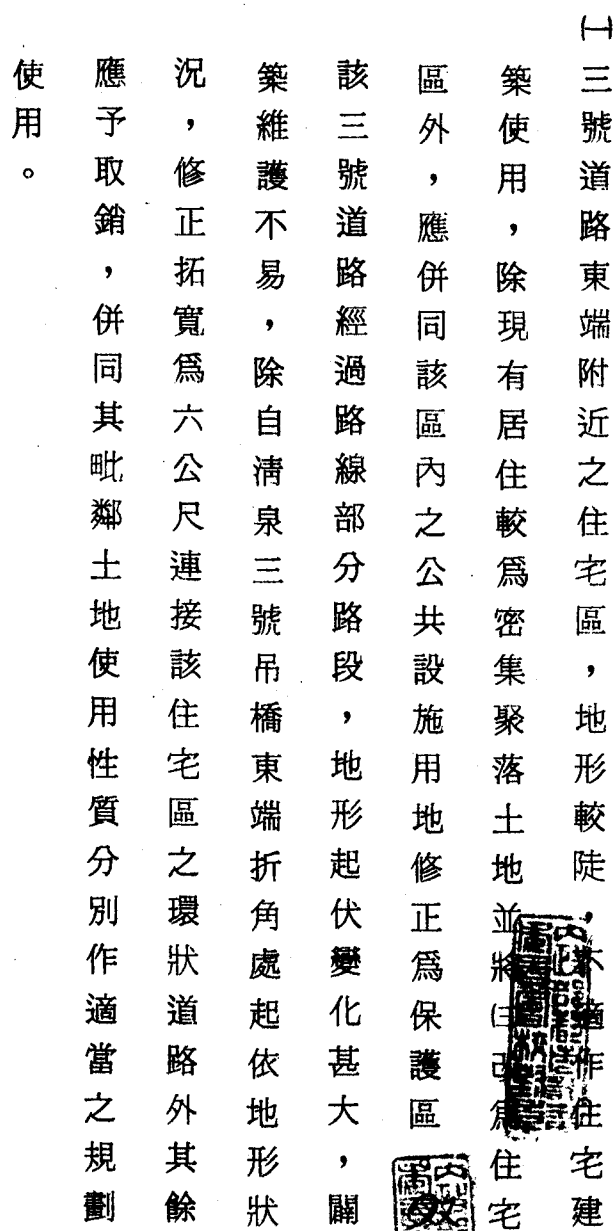 ㈠三號道路東端附近之住宅區，地形較陡，不適作住宅建
築使用，除現有居住較爲密集聚落土地並將爲住宅
區外，應併同該區內之公共設施用地修正爲保護區
該三號道路經過路線部分路段，地形起伏變化甚大，闢
築維護不易，除自淸泉三號吊橋東端折角處起依地形狀
況，修正拓寬爲六公尺連接該住宅區之環狀道路外其餘
應予取銷，併同其毗鄰土地使用性質分別作適當之規劃
使用。